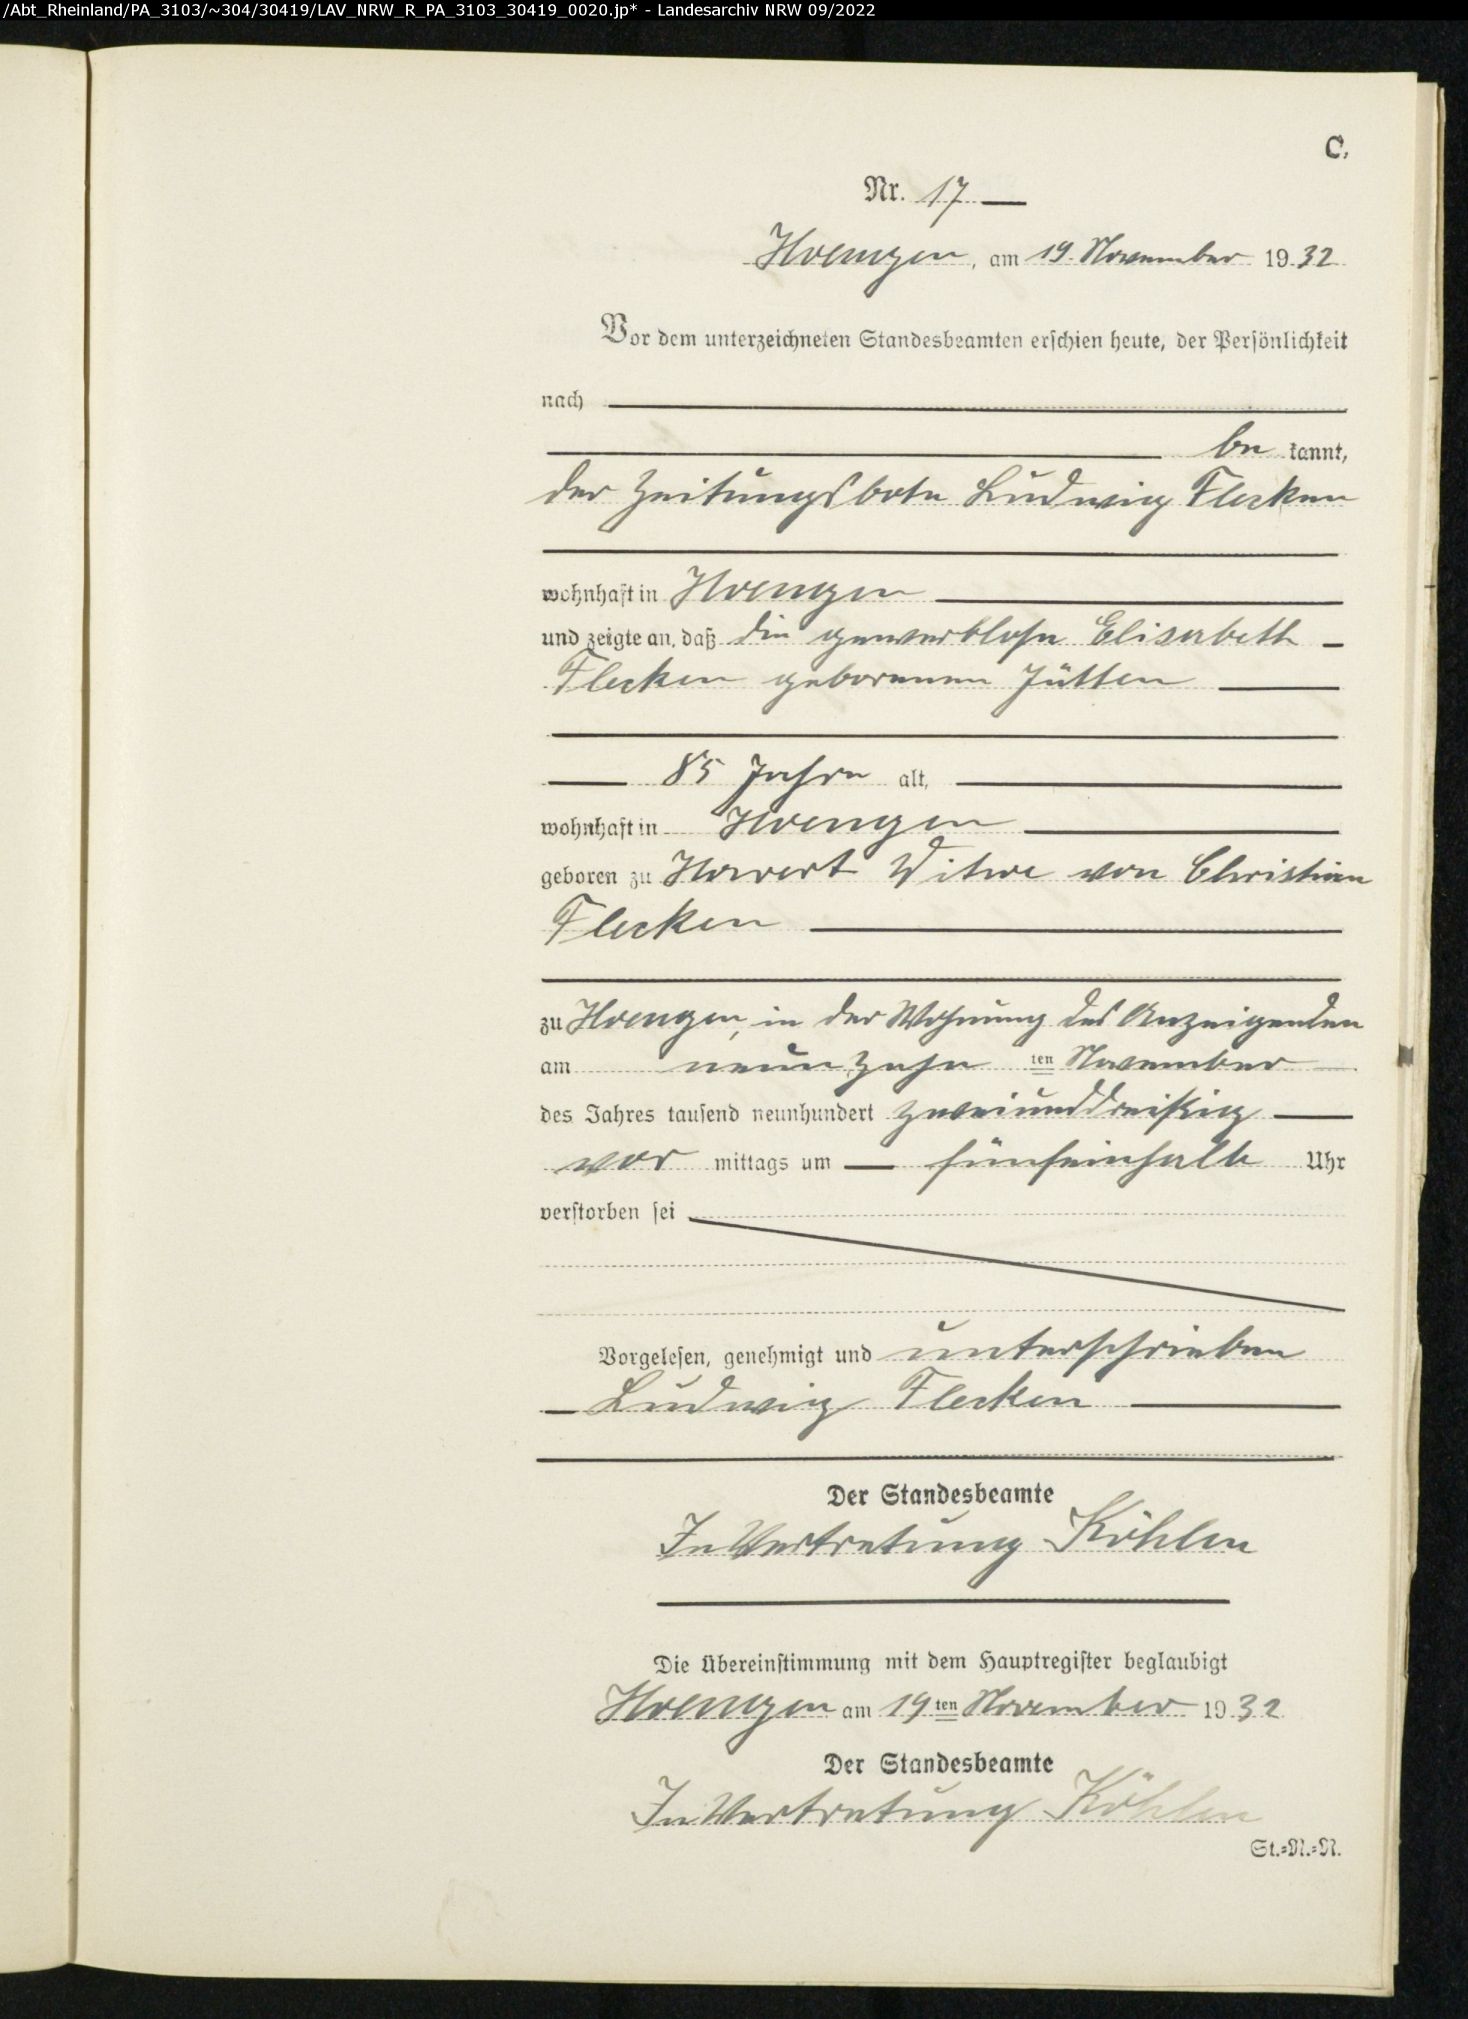 /Abt_Rheinland/PA_3103/~304/30419/LAV_NRW_R_PA_3103_30419_0020.jp* - Landesarchiv NRW 09/2022
C.
Nr. 17
Hoengen, am 19. November 1932
Vor dem unterzeichneten Standesbeamten erschien heute, der Persönlichkeit
nach
be kannt,
der Zeitungsbote Ludwig Flecken
wohnhaft in Hoengen
und zeigte an, daß die gewerblose Elisabeth
Flecken geborenen Jütten
85 Jahre alt,
wohnhaft in Hoengen
geboren zu Havert Witwe von Christian
Flecken
zu Hoengen, in der Wohnung des Anzeigenden
am neunzehn ten November
des Jahres tausend neunhundert zweiunddreißig
vor mittags um fünfeinhalb Uhr
verstorben sei
Vorgelesen, genehmigt und unterschrieben
Ludwig Flecken
Der Standesbeamte
In Vertretung Köhlen
Die Übereinstimmung mit dem Hauptregister beglaubigt
Hoengen am 19ten November 1932
Der Standesbeamte
In Vertretung Köhlen
St.=N.=N.